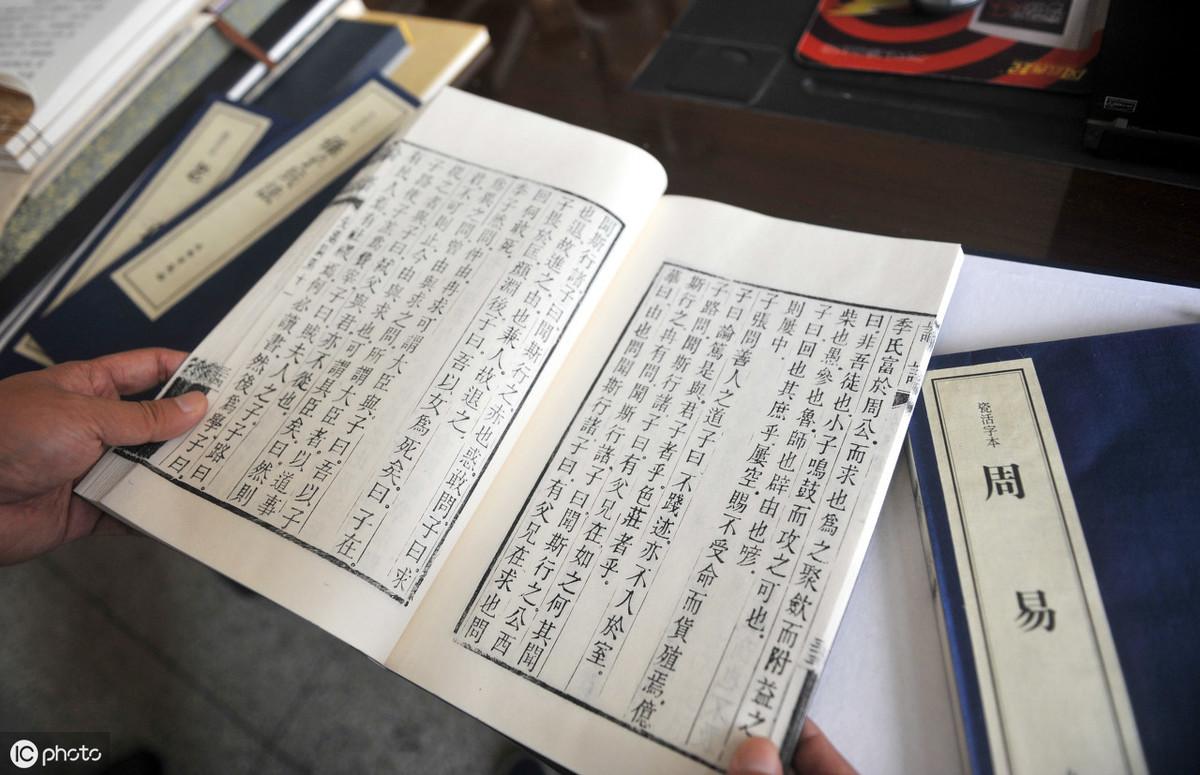 季氏富於周公。而求也爲之聚斂而附益之
曰。非吾徒也。小子鳴鼓而攻之可也。
柴也愚。參也魯。師也辟。由也喭。
子曰。回也其庶乎。屢空。賜不受命。而貨殖焉。億
則屢中。
子張問善人之道。子曰。不踐述。亦不入於室。
子曰。論篤是與。君子者乎。色莊者乎。
子路問聞斯行諸。子曰。有父兄在。如之何其聞
斯行之。冉有問聞斯行諸。子曰。聞斯行之。公西
華曰。由也問聞斯行諸。子曰。有父兄在。求也問
聞斯行諸。子曰。聞斯行之。赤也惑。敢問。子曰。求
也退。故進之。由也兼人。故退之。
子畏於匡。顏淵後。子曰。吾以女爲死矣。曰。子在。
回何敢死。
季子然問。仲由冉求。可謂大臣與。子曰。吾以子
爲異之問。曾由與求之問。所謂大臣者。以道事
君。不可則止。今由與求也。可謂具臣矣。曰。然則
從之者與。子曰。弑父與君。亦不從也。
子路使子羔爲費宰。子曰。賊夫人之子。子路曰。
有民人焉。有社稷焉。何必讀書。然後爲學。子曰。
瓷活字本
周易
IC photo